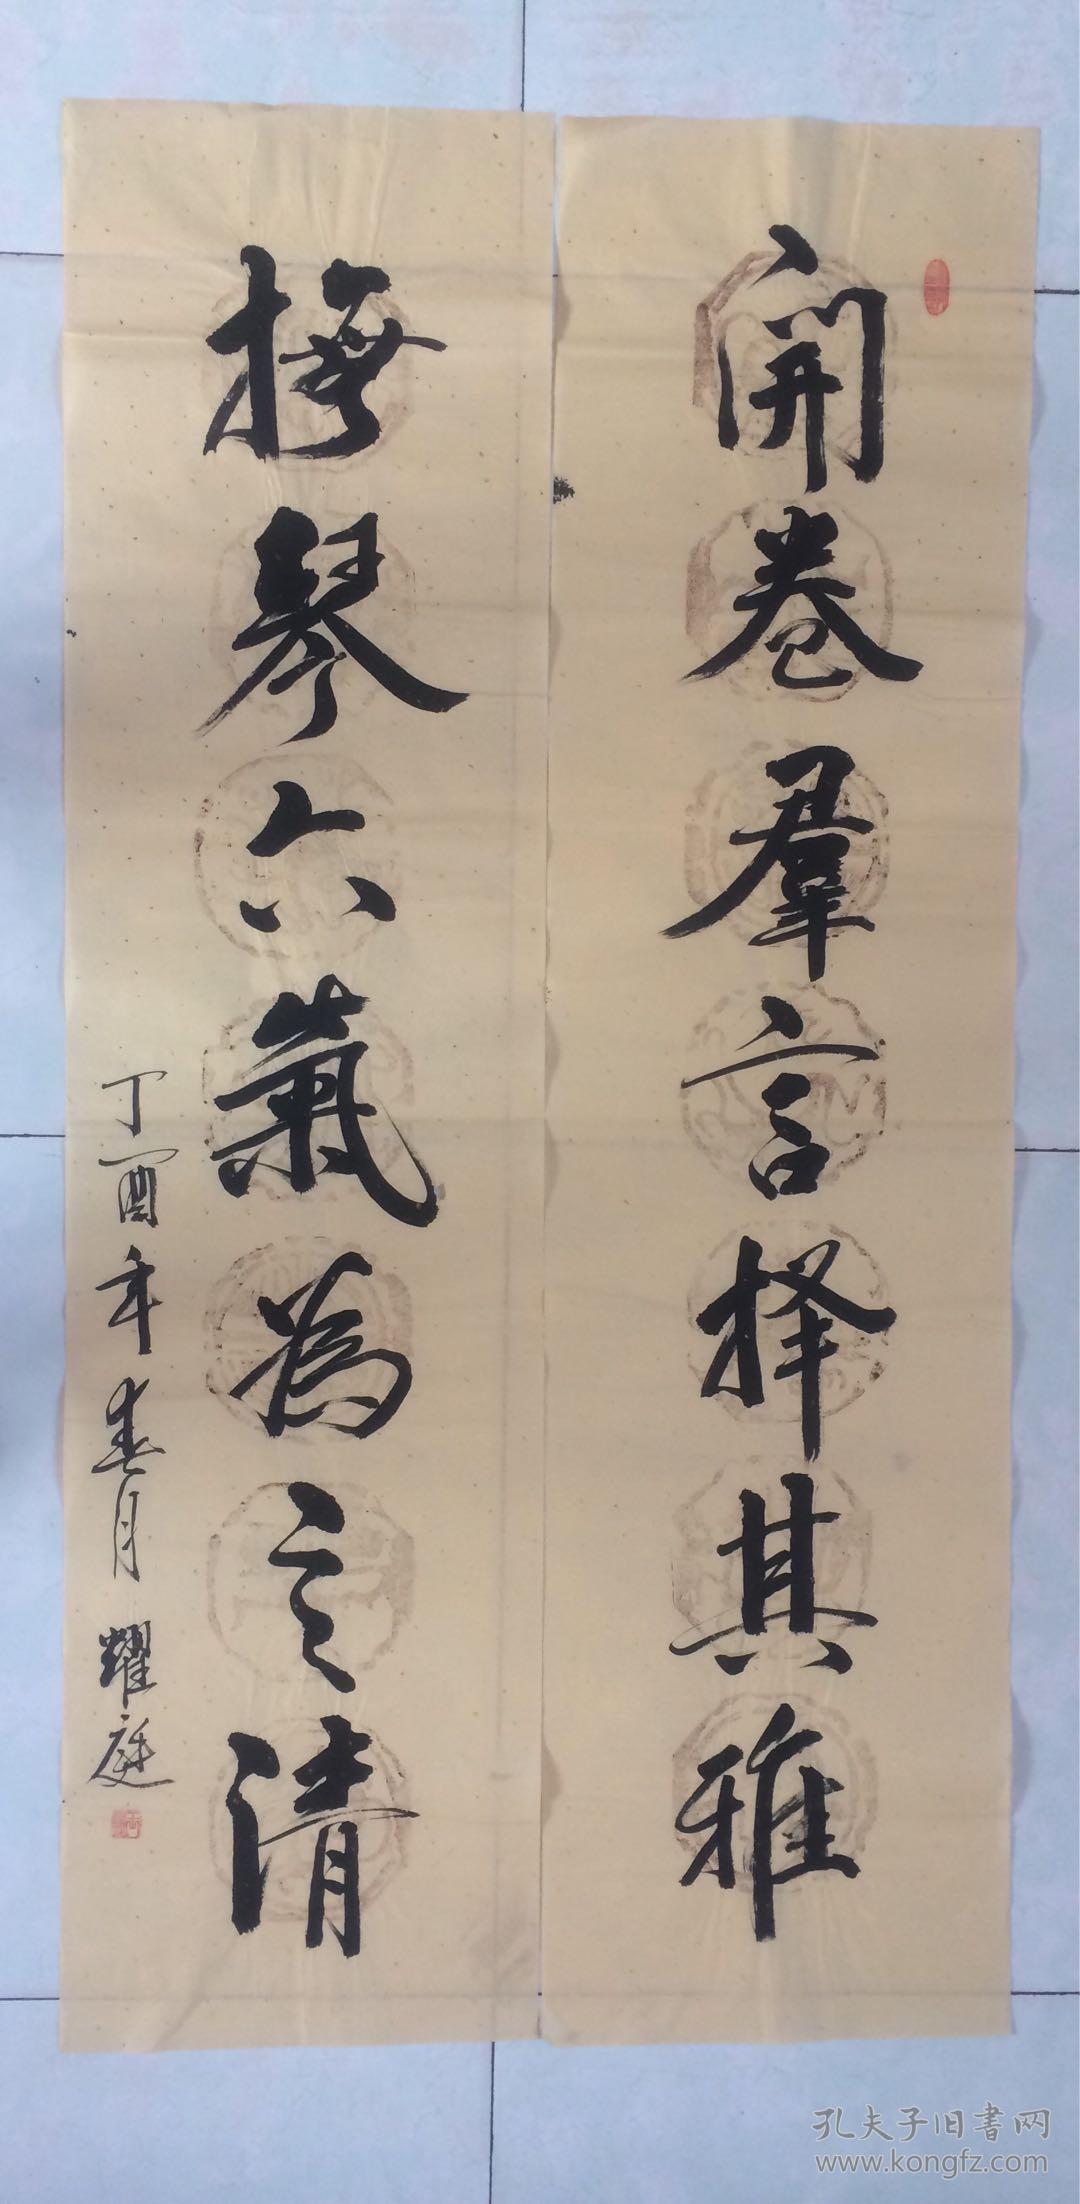 開卷羣言择其雅
撫琴六氣為之清
丁酉年春月 耀庭
孔夫子旧书网
www.kongfz.com